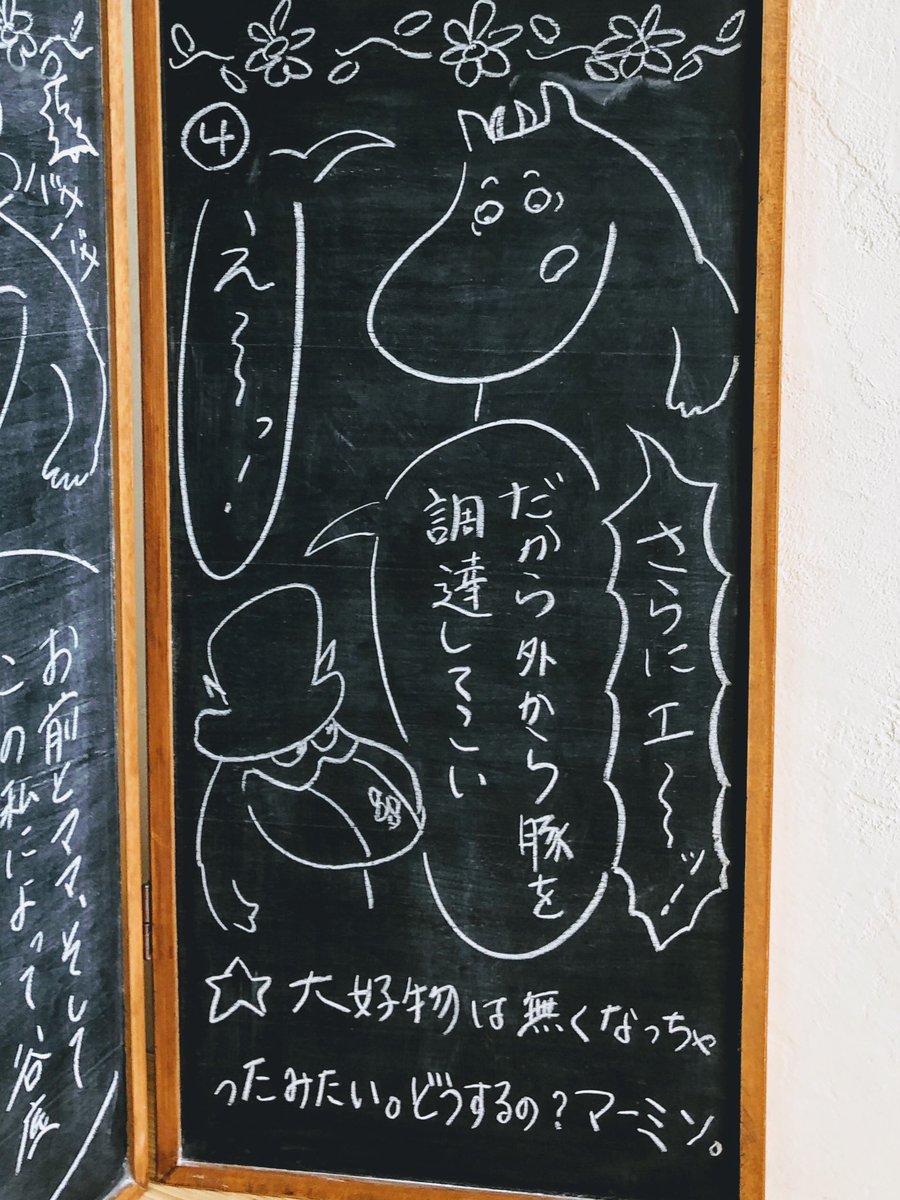 ④
さらにエ～～ッ!!
だから外から豚を
調達してこい
え～～っ!!
☆大好物は無くなっちゃ
ったみたい。どうするの?マーミン。
お前とママ、そして
この私によって、谷底